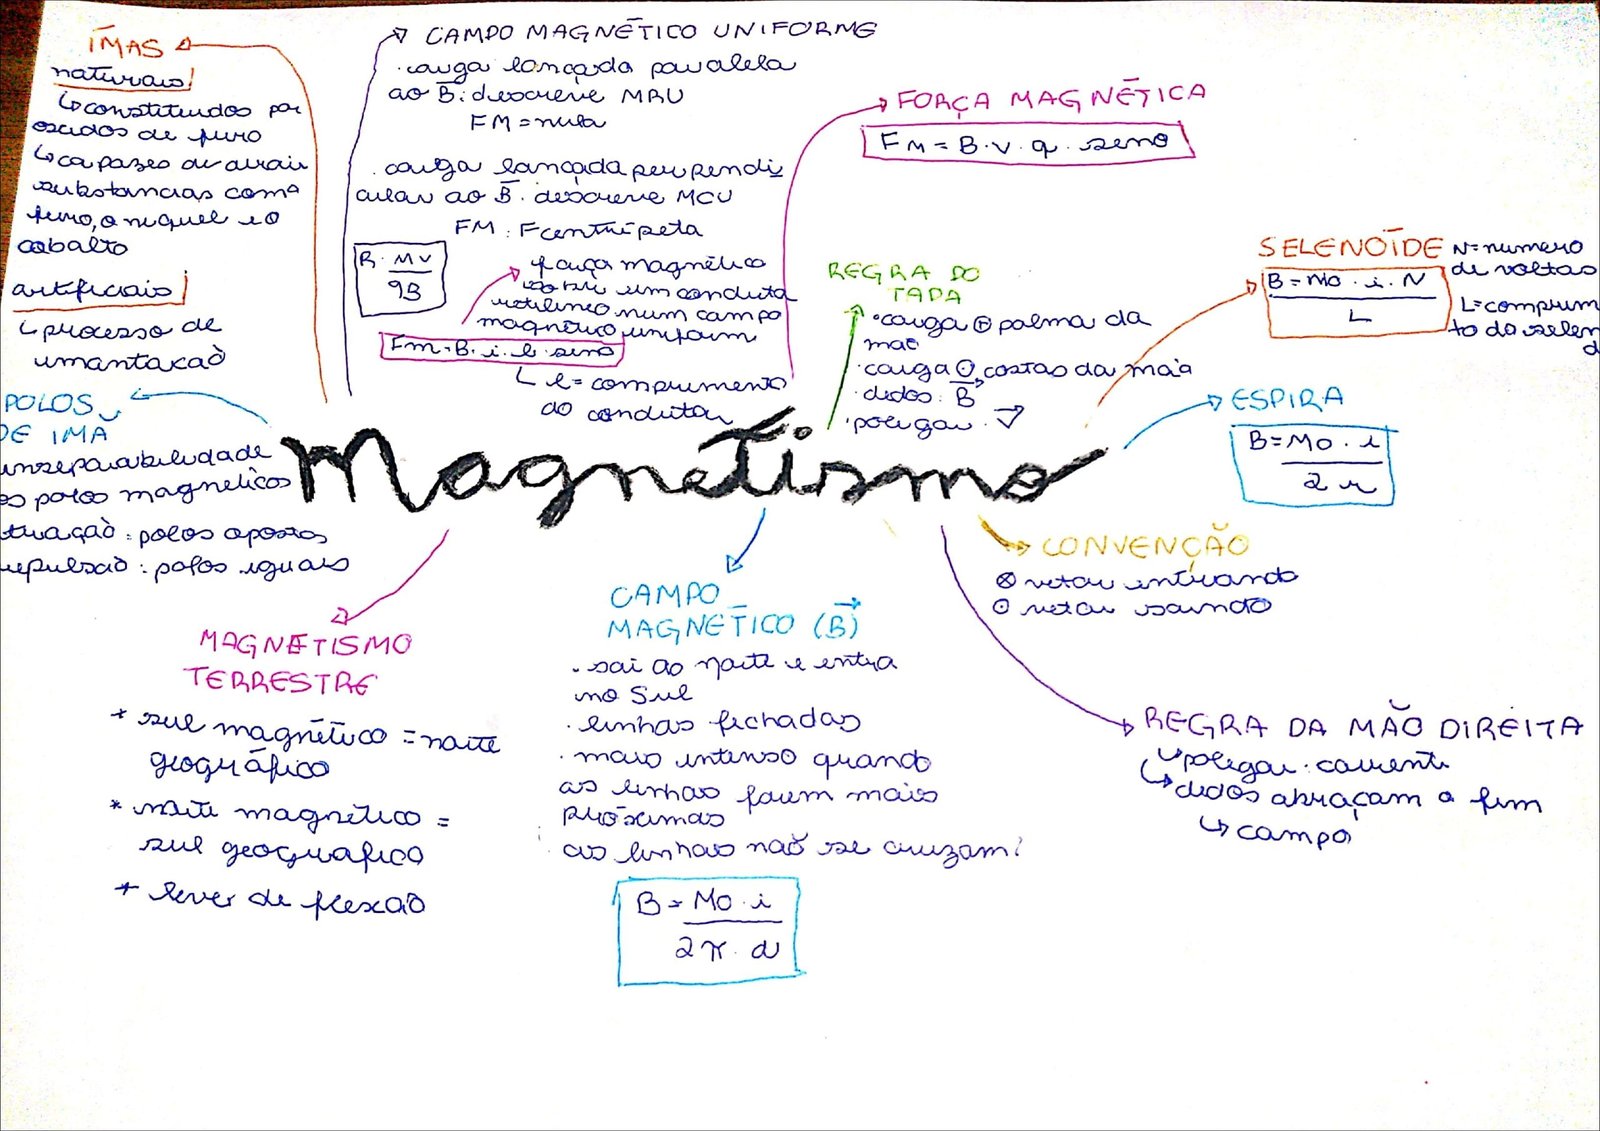 ÍMAS
naturais!
↳constituidos por
oxidos de ferro
↳capazes de atrair
substancias como
ferro, o niquel e o
cobalto
artificiais!
↳processo de
imantaxaò
POLOS
DE IMÃ
inseparabilidade
os polos magneticos
tração: polos opostos
repulsão: polos iguais
CAMPO MAGNÉTICO UNIFORME
· carga lançada paralela
ao B: descreve MRU
FM = nula
· carga lançada perpendi
cular ao B. descreve MCU
FM: Fcentripeta
R. MV
qB
força magnético
sobre um conduta
retilineo num campo
magnético uniform
Fm=B.i.l.seno
L l= comprimento
do condutor
FORÇA MAGNÉTICA
FM = B.v.q.seno
REGRA DO
TAPA
· carga ⊕ palma da
mão
· carga ⊖ costas da mão
· dedos: B
· polegar. V
SELENOÍDE
B=Mo.i.N
L
N=numero
de voltas
L=comprim
to do selen
d
ESPIRA
B=Mo.i
2r
Magnetismo
CONVENÇÃO
⊗ vetor entrando
⊙ vetor saindo
MAGNETISMO
TERRESTRE
* sul magnético = norte
geográfico
* norte magnético =
sul geografico
* lever de flexão
CAMPO
MAGNÉTICO (B)
· sai do norte e entra
no Sul
· linhas fechadas
· mais intenso quando
as linhas forem mais
próximas
as linhas não se cruzam!
B = Mo.i
2π.d
REGRA DA MÃO DIREITA
↳polegar: corrente
↳dedos abraçam o fim
↳campo